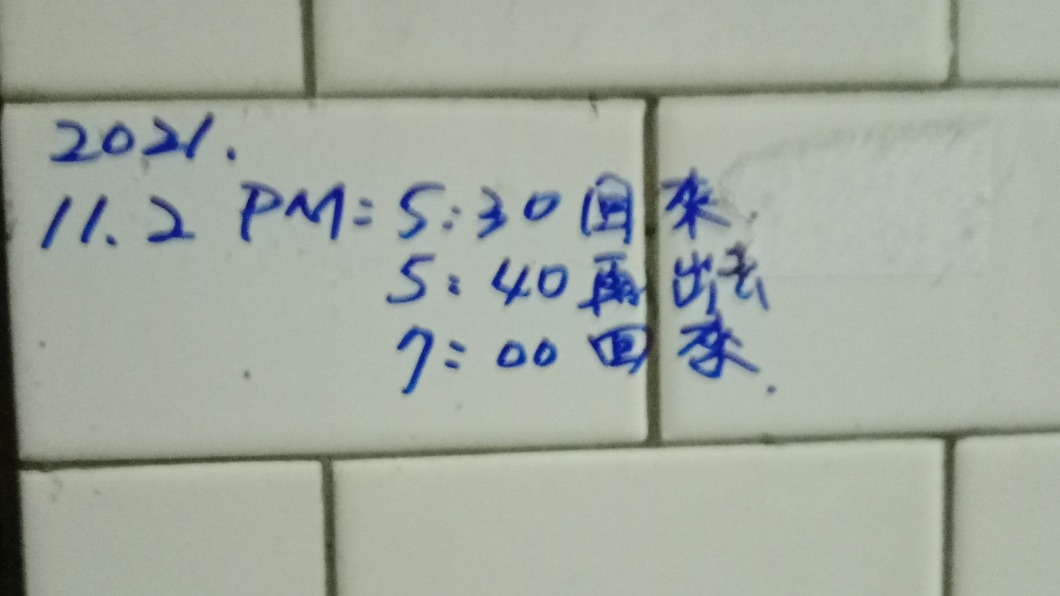 2021.
11.2 PM: 5:30 回来.
5:40 再出去
7:00 回来.